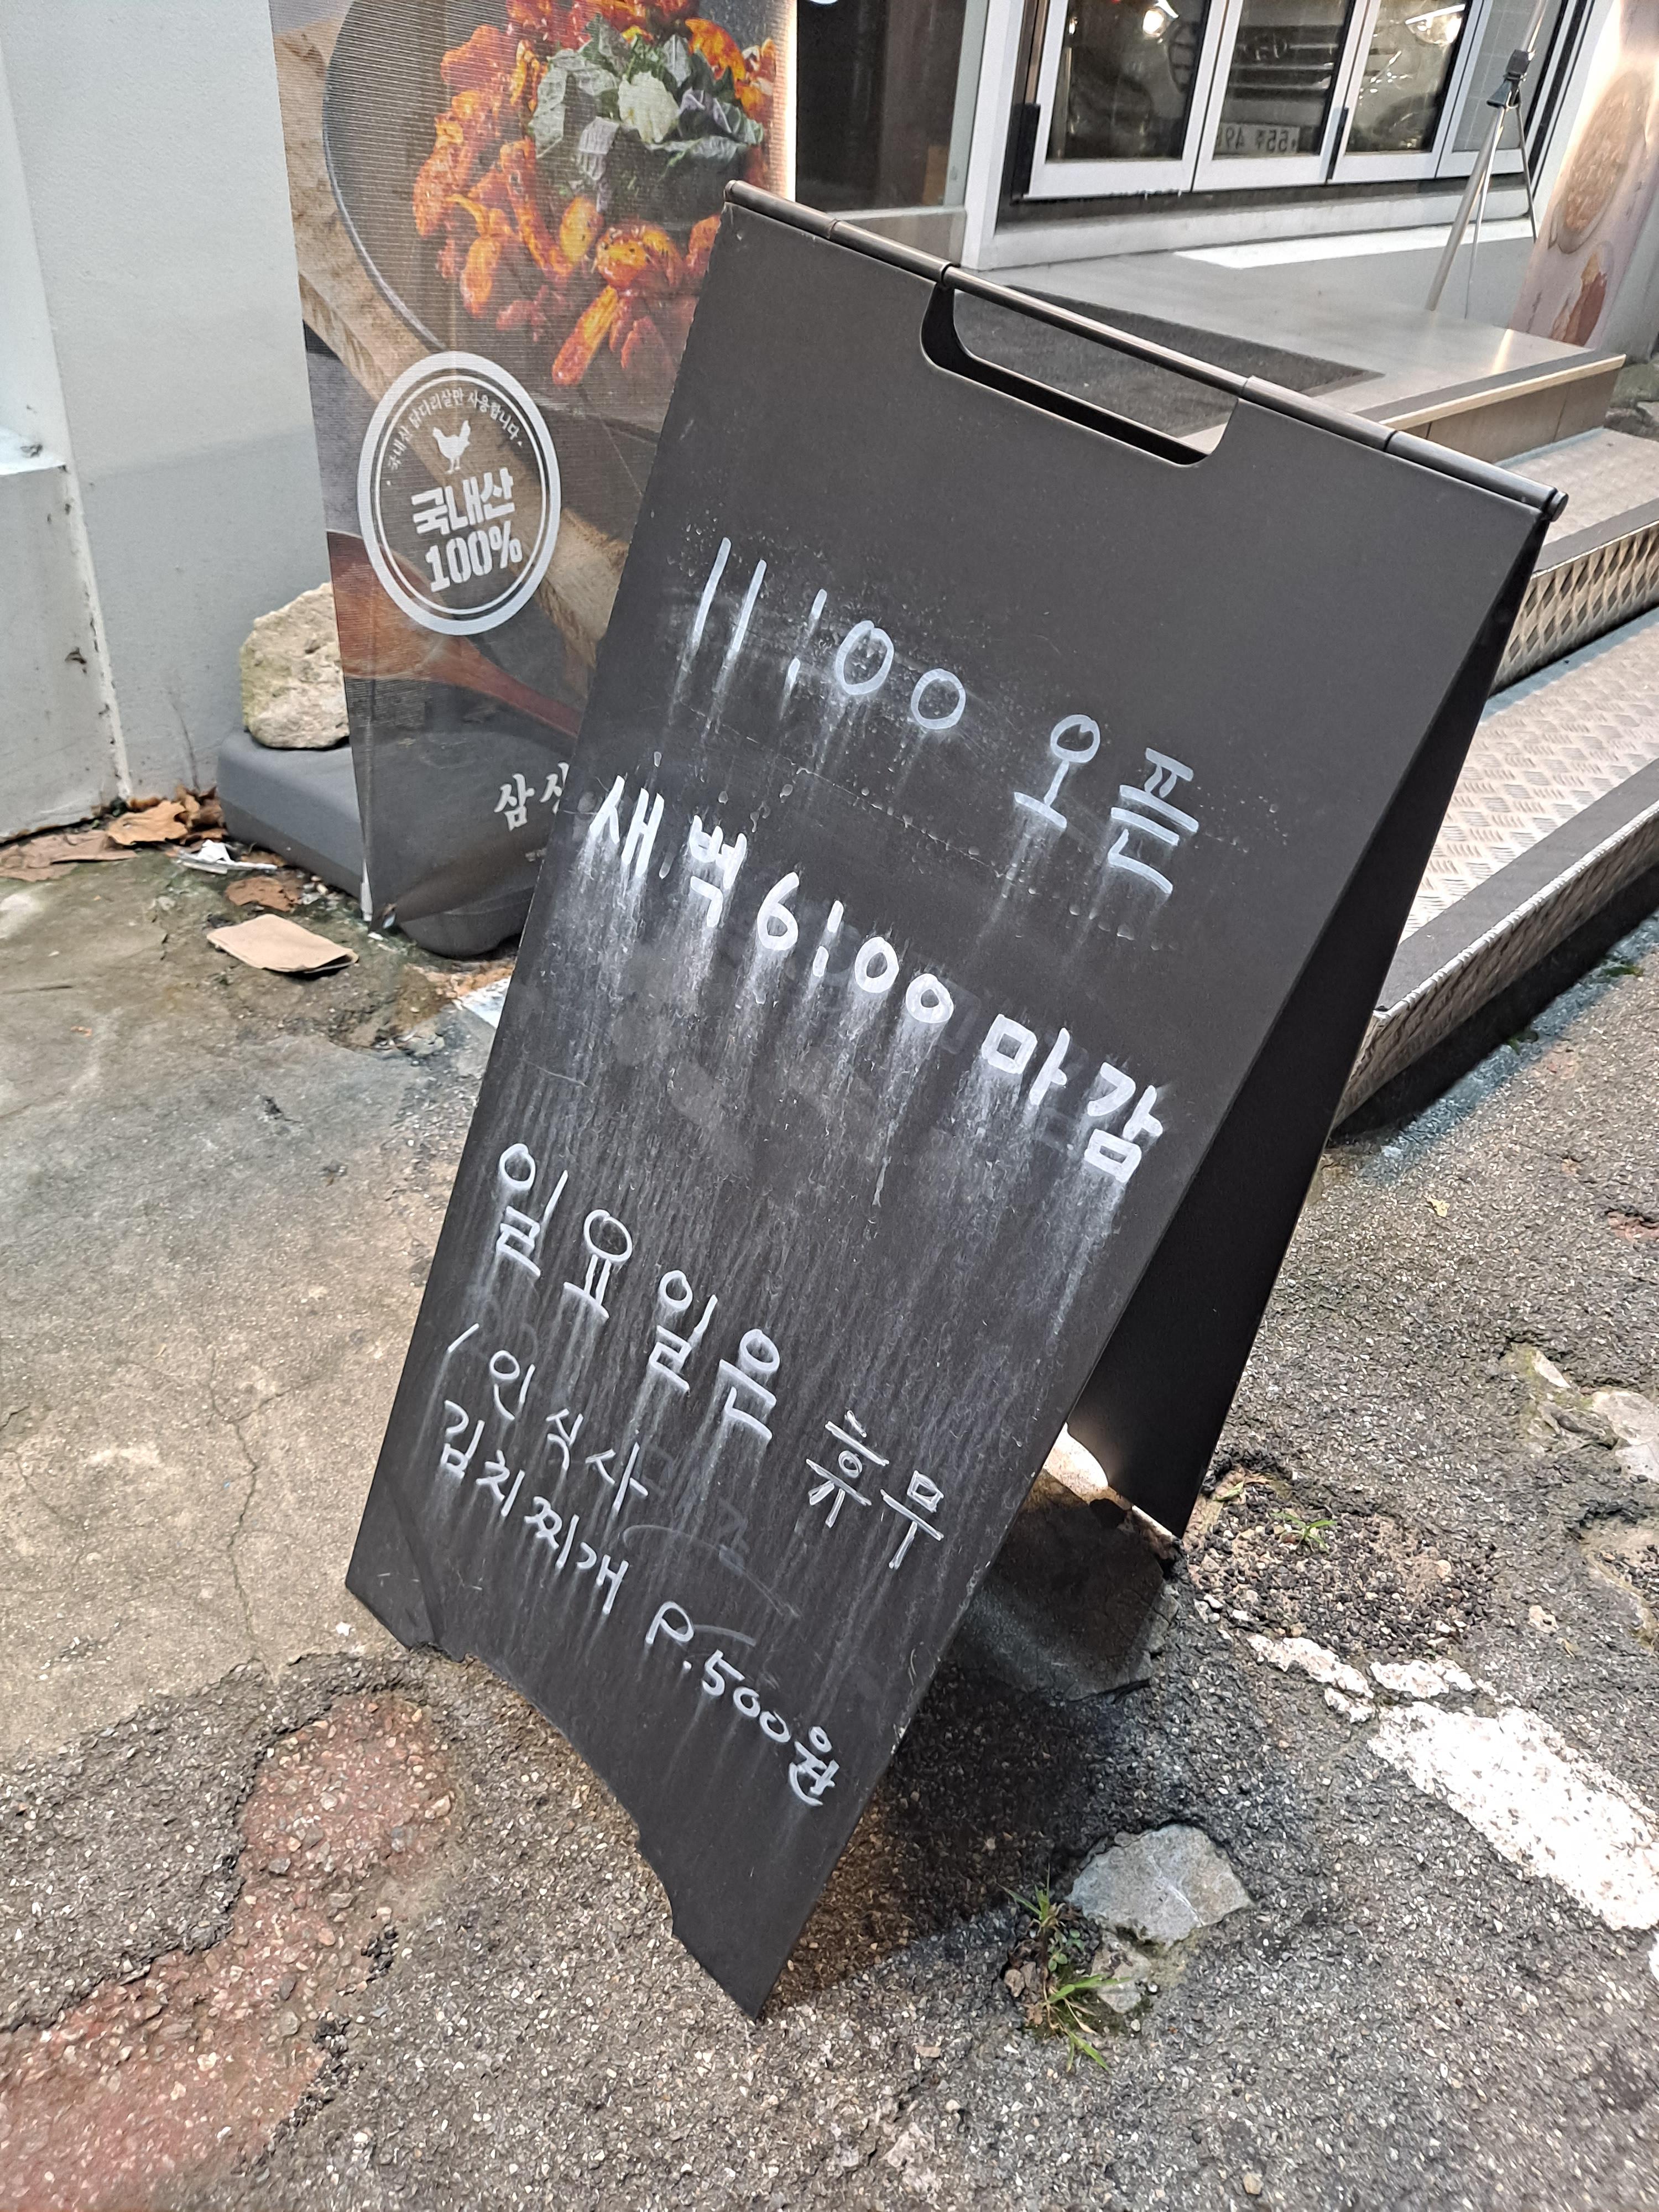 국내산 닭다리살만 사용합니다.
국내산
100%
삼
11:00 오픈
새벽 6:00 마감
일요일은 휴무
1인 식사
김치찌개 P.500원